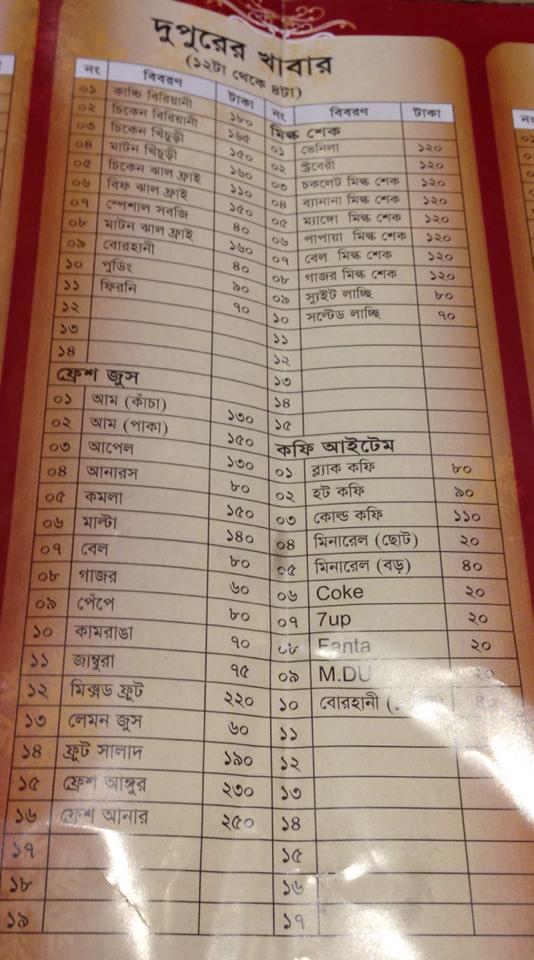 দুপুরের খাবার
(১২টা থেকে ৪টা)
নং বিবরণ টাকা
০১ কাচ্চি বিরিয়ানী ১৮০
০২ চিকেন বিরিয়ানী ১৬৫
০৩ চিকেন খিচুড়ী ১৫০
০৪ মাটন খিচুড়ী ১৬০
০৫ চিকেন ঝাল ফ্রাই ১১০
০৬ বিফ ঝাল ফ্রাই ১৫০
০৭ স্পেশাল সবজি ৪০
০৮ মাটন ঝাল ফ্রাই ১৬০
০৯ বোরহানী ৪০
১০ পুডিং ৯০
১১ ফিরনি ৭০
১২
১৩
১৪
ফ্রেশ জুস
০১ আম (কাঁচা) ১৩০
০২ আম (পাকা) ১৫০
০৩ আপেল ১৩০
০৪ আনারস ৮০
০৫ কমলা ১৫০
০৬ মাল্টা ১৪০
০৭ বেল ৮০
০৮ গাজর ৬০
০৯ পেঁপে ৮০
১০ কামরাঙা ৭০
১১ জাম্বুরা ৭৫
১২ মিক্সড ফ্রুট ২২০
১৩ লেমন জুস ৬০
১৪ ফ্রুট সালাদ ১৯০
১৫ ফ্রেশ আঙ্গুর ২৩০
১৬ ফ্রেশ আনার ২৫০
১৭
১৮
১৯
নং বিবরণ টাকা
মিল্ক শেক
০১ ভেনিলা ১২০
০২ স্ট্রবেরী ১২০
০৩ চকলেট মিল্ক শেক ১২০
০৪ ব্যানানা মিল্ক শেক ১২০
০৫ ম্যাঙ্গো মিল্ক শেক ১২০
০৬ পাপায়া মিল্ক শেক ১২০
০৭ বেল মিল্ক শেক ১২০
০৮ গাজর মিল্ক শেক ১২০
০৯ স্যুইট লাচ্ছি ৮০
১০ সল্টেড লাচ্ছি ৭০
১১
১২
১৩
১৪
১৫
কফি আইটেম
০১ ব্ল্যাক কফি ৮০
০২ হট কফি ৯০
০৩ কোল্ড কফি ১১০
০৪ মিনারেল (ছোট) ২০
০৫ মিনারেল (বড়) ৪০
০৬ Coke ২০
০৭ 7up ২০
০৮ Fanta ২০
০৯ M.DU
১০ বোরহানী
১১
১২
১৩
১৪
১৫
১৬
১৭